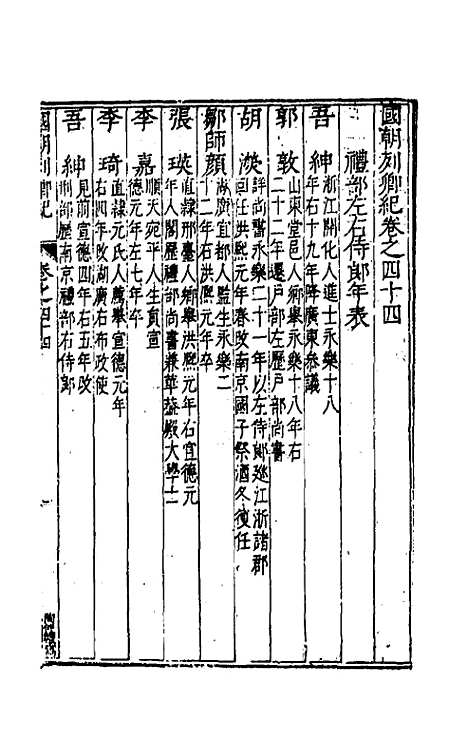 國朝列卿紀卷之四十四
禮部左右侍郎年表
吾紳 浙江開化人進士永樂十八
年右十九年降廣東參議
郭敦 山東堂邑人鄉舉永樂十八年右
二十二年遷戶部左歷戶部尚書
胡濙 詳尚書永樂二十一年以左侍郎廵江浙諸郡
回任洪熙元年春改南京國子祭酒冬復任
鄒師顏 湖廣宜都人監生永樂二
十二年右洪熙元年卒
張瑛 直隸邢臺人鄉舉洪熙元年右宣德元
年入閣歷禮部尚書兼華葢殿大學士
李嘉 順天宛平人生員宣
德元年左七年卒
李琦 直隸元氏人薦舉宣德元年
右四年改湖廣右布政使
吾紳 見前宣德四年右五年改
刑部歷南京禮部右侍郎
國朝列卿紀 卷之四十四 一